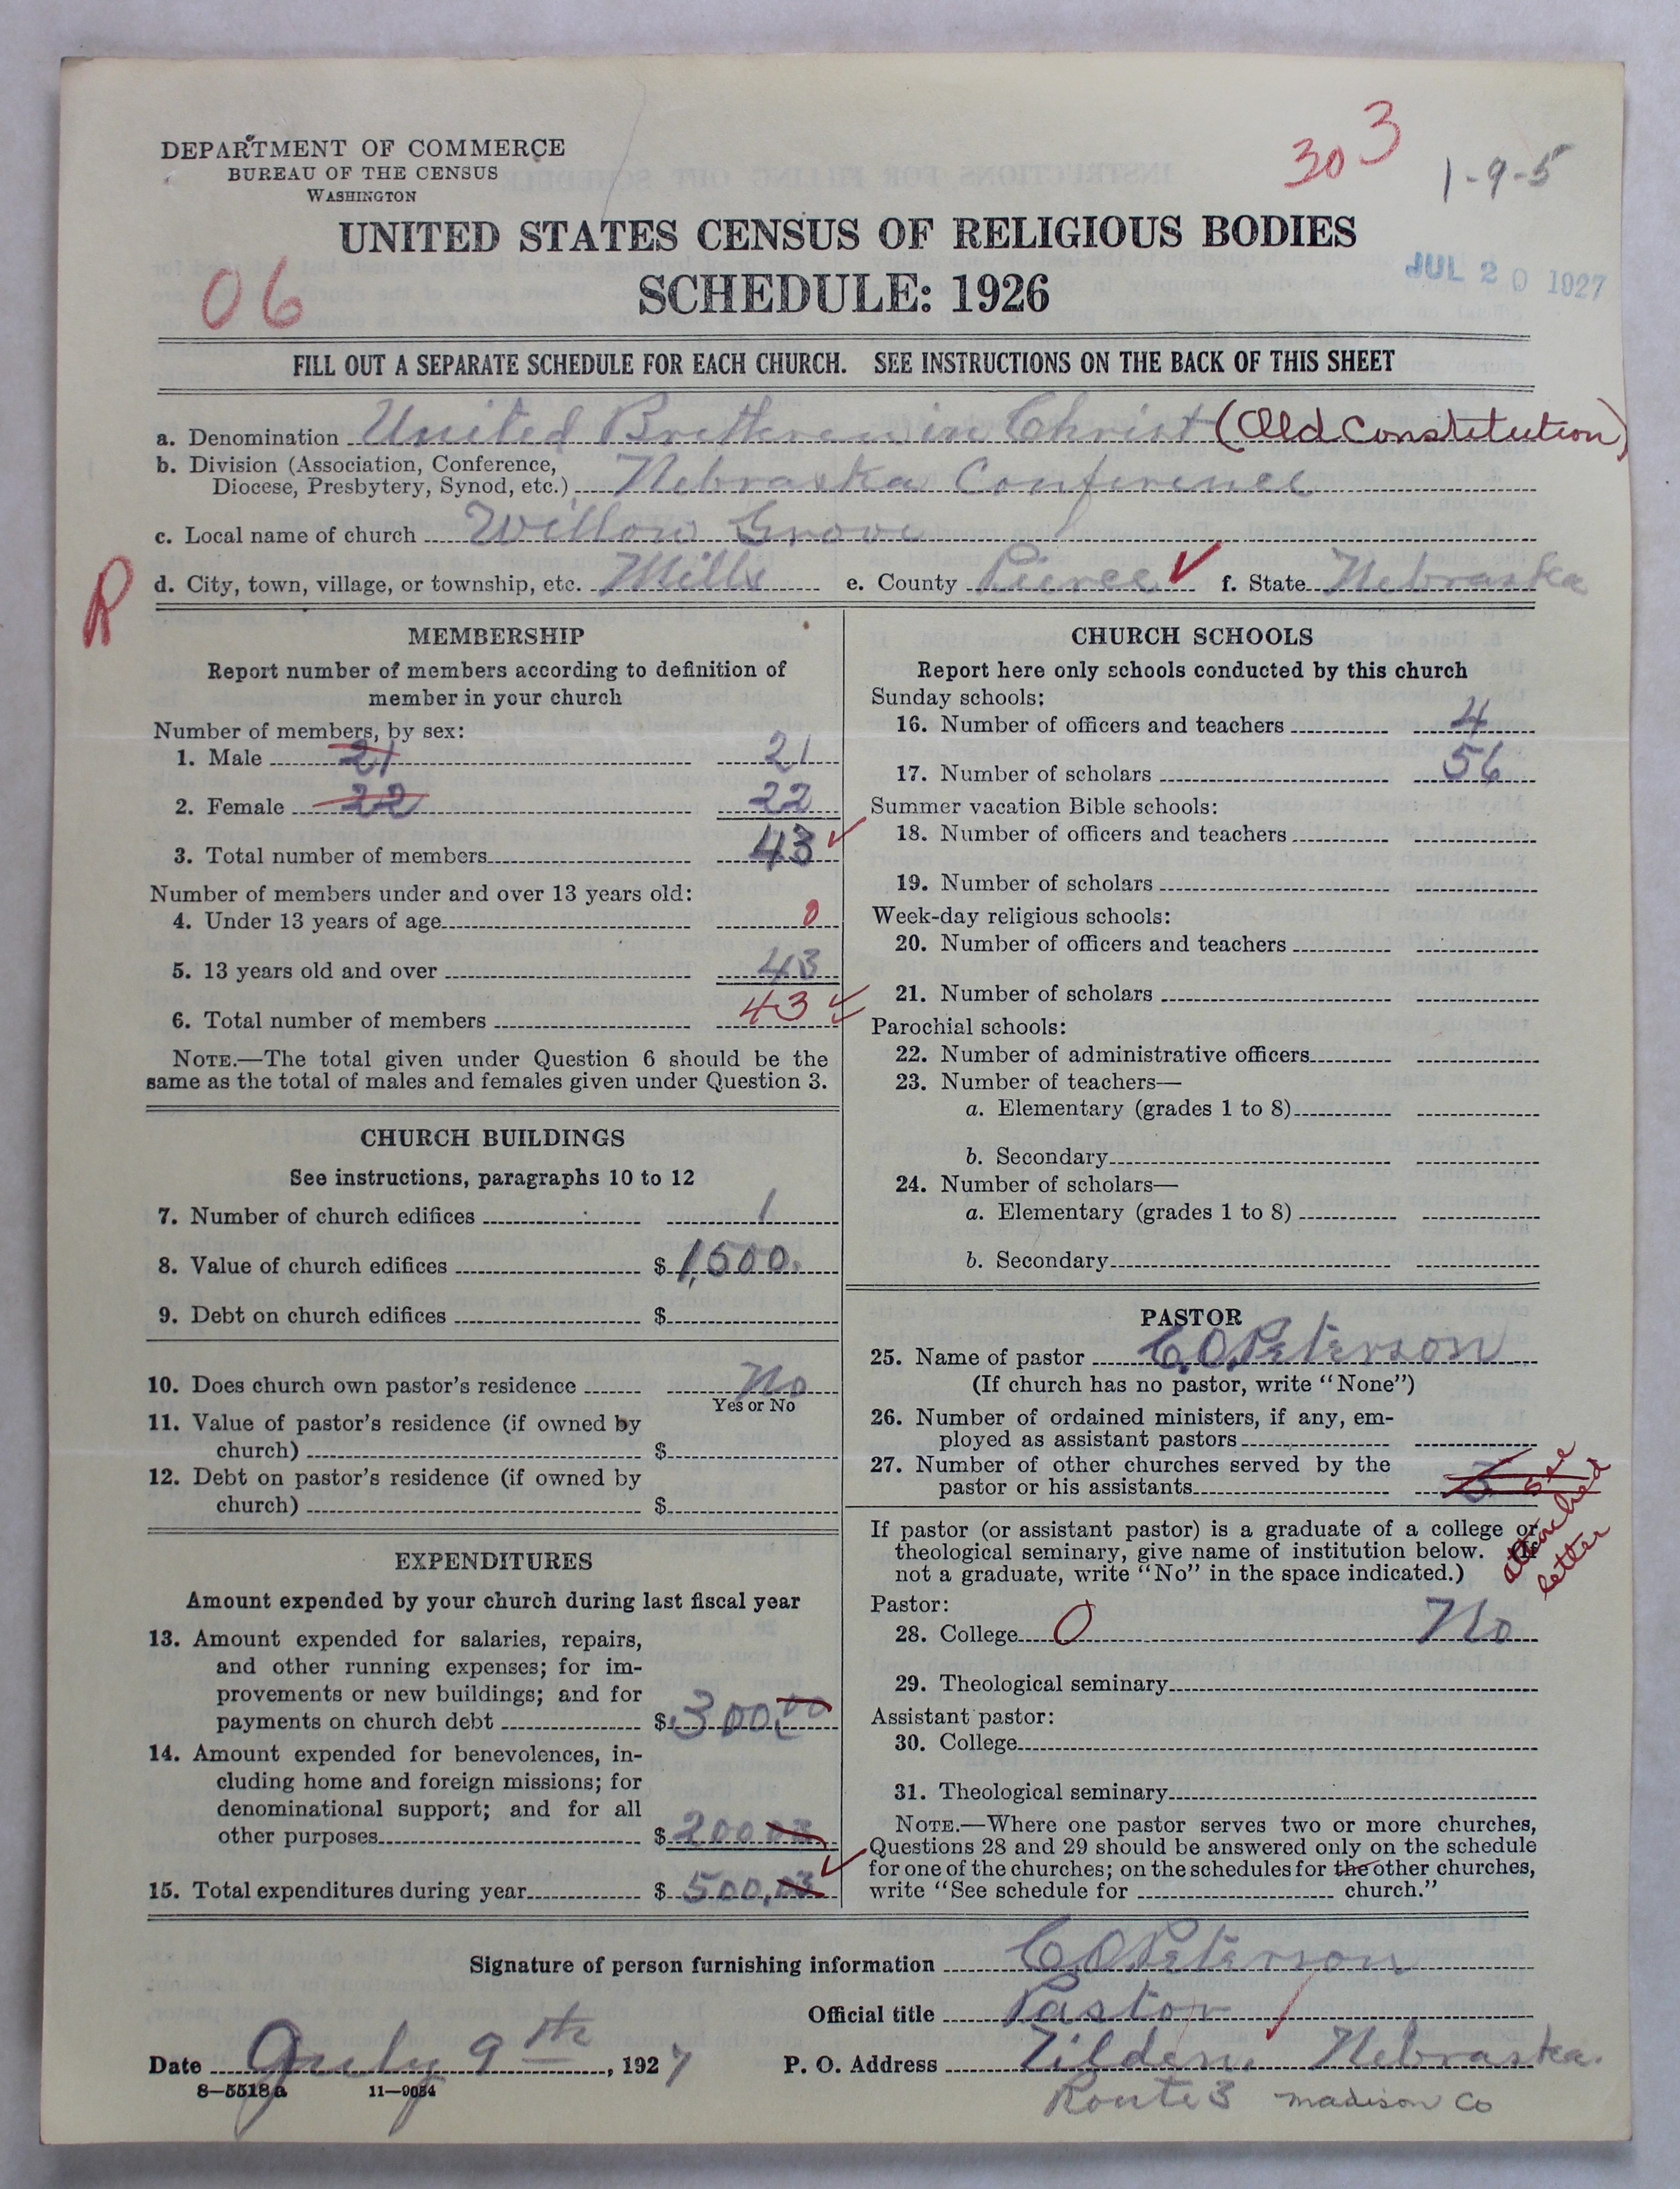 DEPARTMENT OF COMMERCE
BUREAU OF THE CENSUS
WASHINGTON
303
1-9-5
UNITED STATES CENSUS OF RELIGIOUS BODIES
SCHEDULE: 1926
06
JUL 20 1927
FILL OUT A SEPARATE SCHEDULE FOR EACH CHURCH. SEE INSTRUCTIONS ON THE BACK OF THIS SHEET
a. Denomination United Brethren in Christ (Old Constitution)
b. Division (Association, Conference,
Diocese, Presbytery, Synod, etc.) Nebraska Conference
c. Local name of church Willow Grove
R
d. City, town, village, or township, etc. Mills e. County Pierce ✓ f. State Nebraska
MEMBERSHIP
Report number of members according to definition of
member in your church
Number of members, by sex:
1. Male 21 21
2. Female 22 22
3. Total number of members 43 ✓
Number of members under and over 13 years old:
4. Under 13 years of age 0
5. 13 years old and over 43
6. Total number of members 43 ✓
NOTE.—The total given under Question 6 should be the
same as the total of males and females given under Question 3.
CHURCH BUILDINGS
See instructions, paragraphs 10 to 12
7. Number of church edifices 1
8. Value of church edifices $ 1,500.
9. Debt on church edifices $
10. Does church own pastor's residence No
Yes or No
11. Value of pastor's residence (if owned by
church) $
12. Debt on pastor's residence (if owned by
church) $
EXPENDITURES
Amount expended by your church during last fiscal year
13. Amount expended for salaries, repairs,
and other running expenses; for im-
provements or new buildings; and for
payments on church debt $ 300.00
14. Amount expended for benevolences, in-
cluding home and foreign missions; for
denominational support; and for all
other purposes $ 200
15. Total expenditures during year $ 500. ✓
CHURCH SCHOOLS
Report here only schools conducted by this church
Sunday schools:
16. Number of officers and teachers 4
17. Number of scholars 56
Summer vacation Bible schools:
18. Number of officers and teachers
19. Number of scholars
Week-day religious schools:
20. Number of officers and teachers
21. Number of scholars
Parochial schools:
22. Number of administrative officers
23. Number of teachers—
a. Elementary (grades 1 to 8)
b. Secondary
24. Number of scholars—
a. Elementary (grades 1 to 8)
b. Secondary
PASTOR
25. Name of pastor C.O. Peterson
(If church has no pastor, write "None")
26. Number of ordained ministers, if any, em-
ployed as assistant pastors
27. Number of other churches served by the
pastor or his assistants 3
see attached letter
If pastor (or assistant pastor) is a graduate of a college or
theological seminary, give name of institution below. (If
not a graduate, write "No" in the space indicated.)
Pastor:
28. College 0 No
29. Theological seminary
Assistant pastor:
30. College
31. Theological seminary
NOTE.—Where one pastor serves two or more churches,
Questions 28 and 29 should be answered only on the schedule
for one of the churches; on the schedules for the other churches,
write "See schedule for church."
Signature of person furnishing information C O Peterson
Official title Pastor
Date July 9th, 1927 P. O. Address Tilden, Nebraska.
8—5518a 11—9054
Route 3 Madison Co